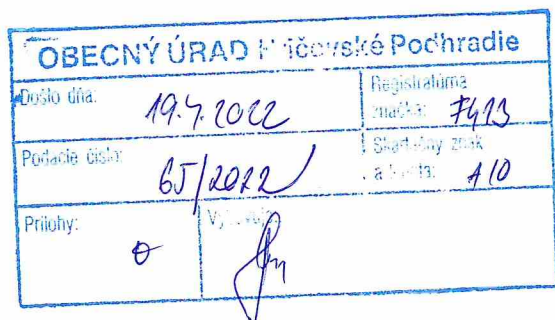 OBECNÝ ÚRAD Hričovské Podhradie
Došlo dňa: 19.4.2022
Registratúrna
značka:
Podacie číslo: 65/2022
Skartačný znak
a lehota: A10
Prílohy: 0
Vybavuje: